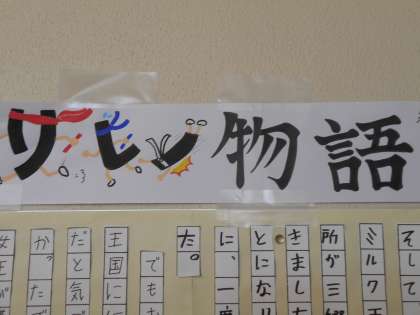 リレン物語
そして
ミルク王
所が三
きまし
とになり
に、一度
た。
でも
王国に
だと気
が、た
女王が